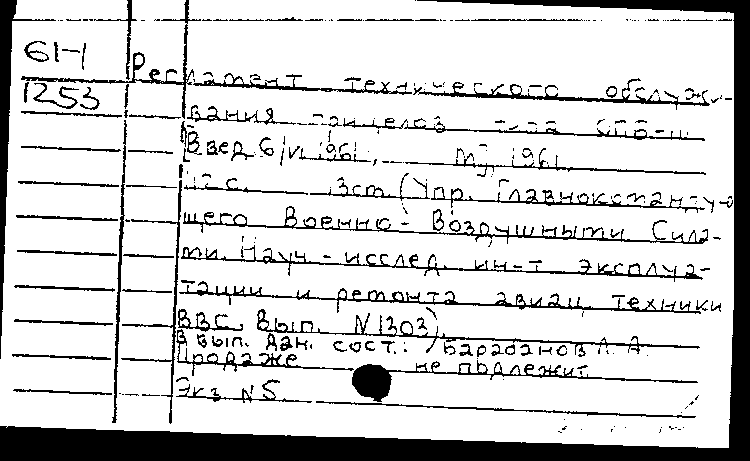 61-1
1253
Регламент технического обслужи-
вания прицелов типа СПБ-II
[Введ. 6/VI 1961, М., 1961.
с. 13см (Упр. Главнокоманду-
щего Военно-Воздушныти Сила-
ми. Науч-исслед. ин-т эксплуа-
тации и ремонта авиац. техники
ВВС. Вып. N 1303).
В вып. дан. сост.: Барабанов А. А.
Продаже не подлежит
Экз. N 5.